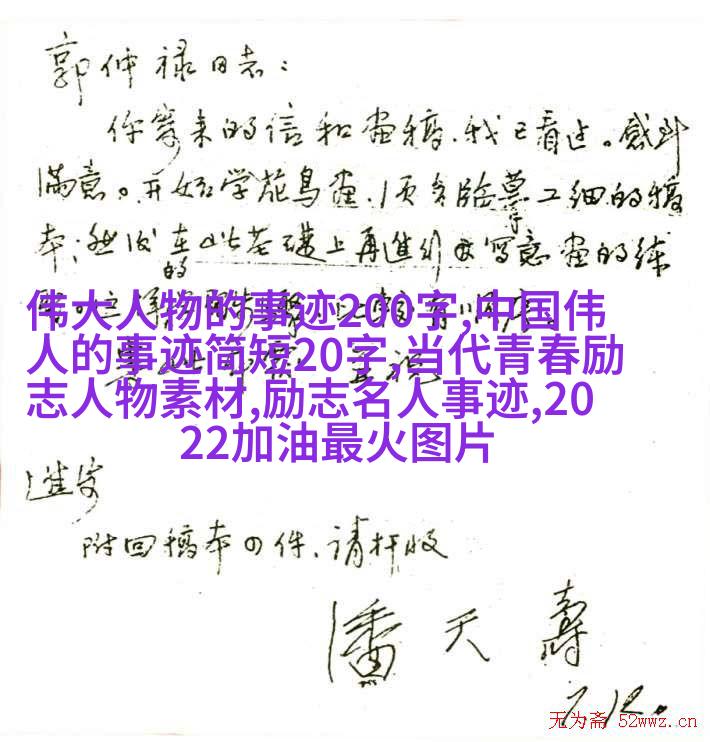 郭仲禄同志：
你寄来的信和画稿，我已看过。感到
满意。开始学花鸟画，须多临摹工细的稿
本；然后在此基础上再进行写意画的练
的
伟大人物的事迹200字,中国伟
人的事迹简短20字,当代青春励
志人物素材,励志名人事迹,20
22加油最火图片
进步
附回稿本四件、请检收
潘天寿
7.12.
无为斋 52wwz.cn